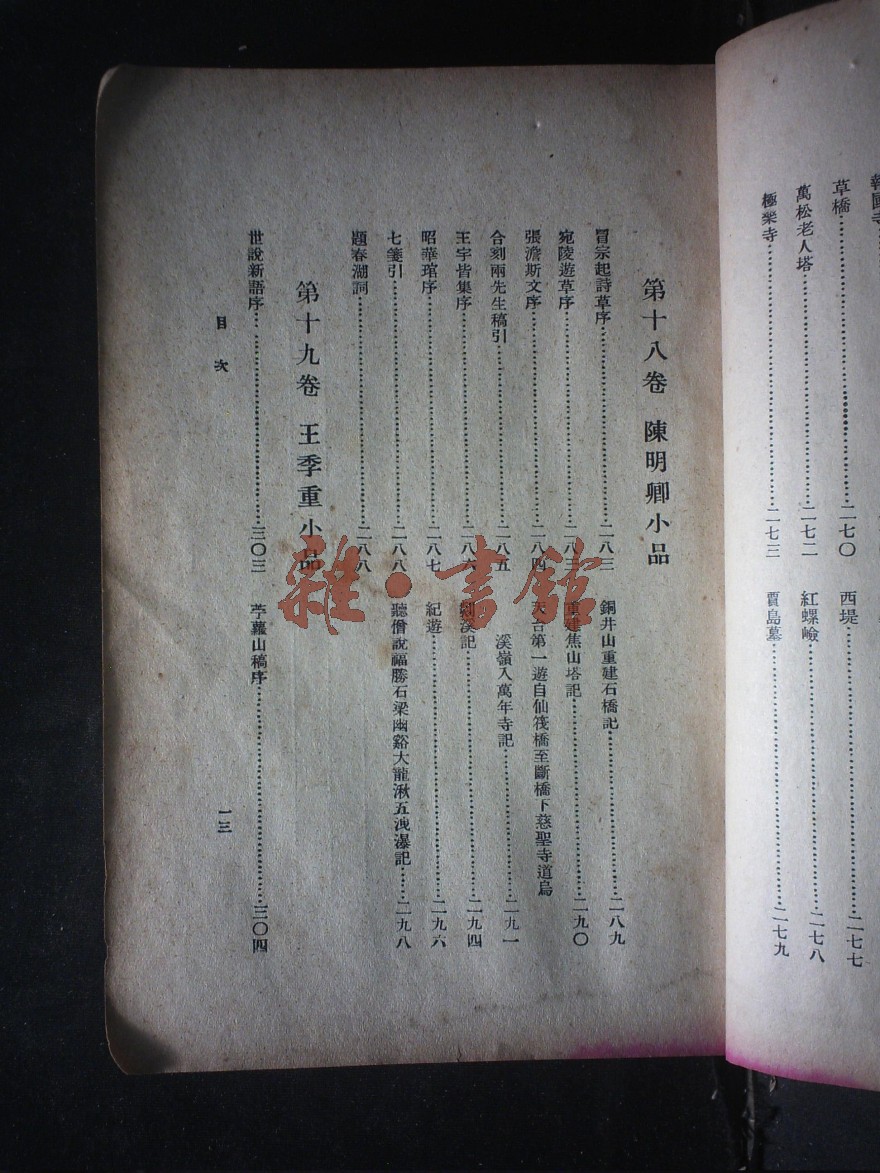 報國寺
草橋……二七〇 西堤……二七七
萬松老人塔……二七二 紅螺嶮……二七八
極樂寺……二七三 賈島墓……二七九
第十八卷 陳明卿小品
冒宗起詩草序……二八三 銅井山重建石橋記……二八九
宛陵遊草序……二八三 重建焦山塔記……二九〇
張澹斯文序……二八四 天台第一遊自仙筏橋至斷橋下慈聖寺道烏
合刻兩先生稿引……二八五 溪嶺入萬年寺記……二九一
王宇皆集序……二八六 剡溪記……二九四
昭華琯序……二八七 紀遊……二九六
七箋引……二八八 聽僧說福勝石梁幽谿大龍湫五洩瀑記……二九八
題春湖詞……二八八
第十九卷 王季重小品
世說新語序……三〇三 苧蘿山稿序……三〇四
目次
一三
雜·書館